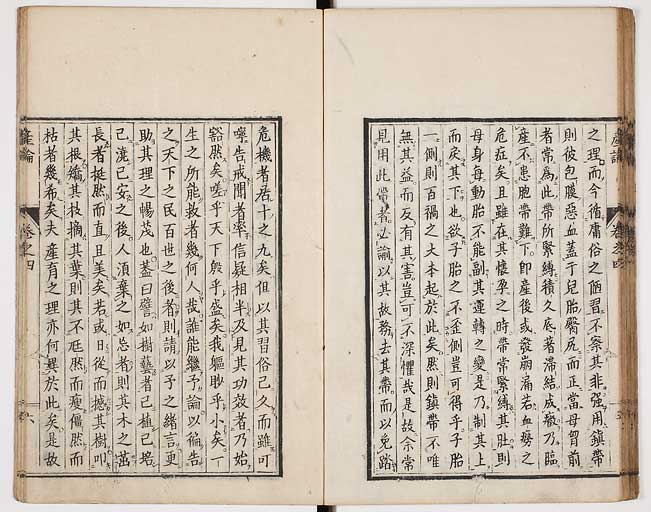 產論
卷之四
之理而今循庸俗之陋習不察其非強用鎮帶
則彼包膜惡血蓋于兒胎臀尻而正當母胃前
者常為此帶所緊縛積久底著滯結成癥乃臨
產不患胞帶難下即產後或發崩漏若血暈之
危症矣且雖在其懷孕之時帶常緊縛其肚則
母身每動胎不能副其運轉之變是乃制其上
而戾其下也欲子胎之不歪側豈可得乎子胎
一側則百禍之大本起於此矣然則鎮帶不唯
無其益而反有其害豈可不深懼哉是故余常
見用此帶者必諭以其故務去其帶而以免踏
危機者居十之九矣但以其習俗已久而雖可
嚀告戒聞者率信疑相半及見其功效者乃始
豁然矣嗟乎天下殷乎盛矣我軀眇乎小矣一
生之所能救者幾何人哉誰能繼予論以徧告
之天下之民百世之後者則請以予之緒言更
助其理之暢茂也蓋曰譬如樹藝者已植已培
已澆已安之後人須棄之如忘者則其木之
長者挺然而直且美矣若或日從而撼其樹叩
其根矯其枝摘其葉則其不尫然而瘦僵然而
枯者幾希矣夫產育之理亦何異於此矣是故
產論
卷之四
六